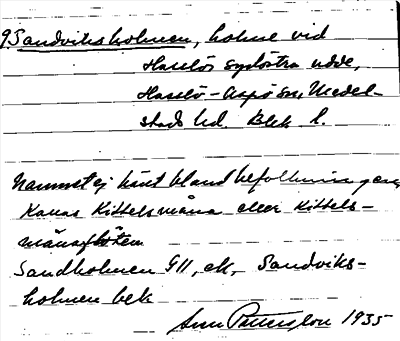 9 Sandviksholmen, holme vid
Hasslös sydöstra udde,
Hasslö-Aspö sn, Medel-
stads hd. Blek l.
Namnet ej känt bland befolkningen,
Kallas Kittelsmåna eller Kittels-
månaflöten
Sandholmen GII, ek, Sandviks-
holmen bek
1935